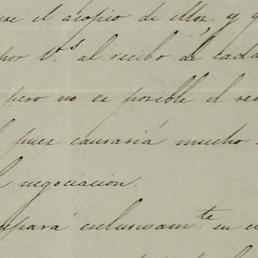 el acopio de ellos, y
por V.s al recibo de cada
pero no es posible el
pues causaria mucho
negociacion.
esclusivam.te en